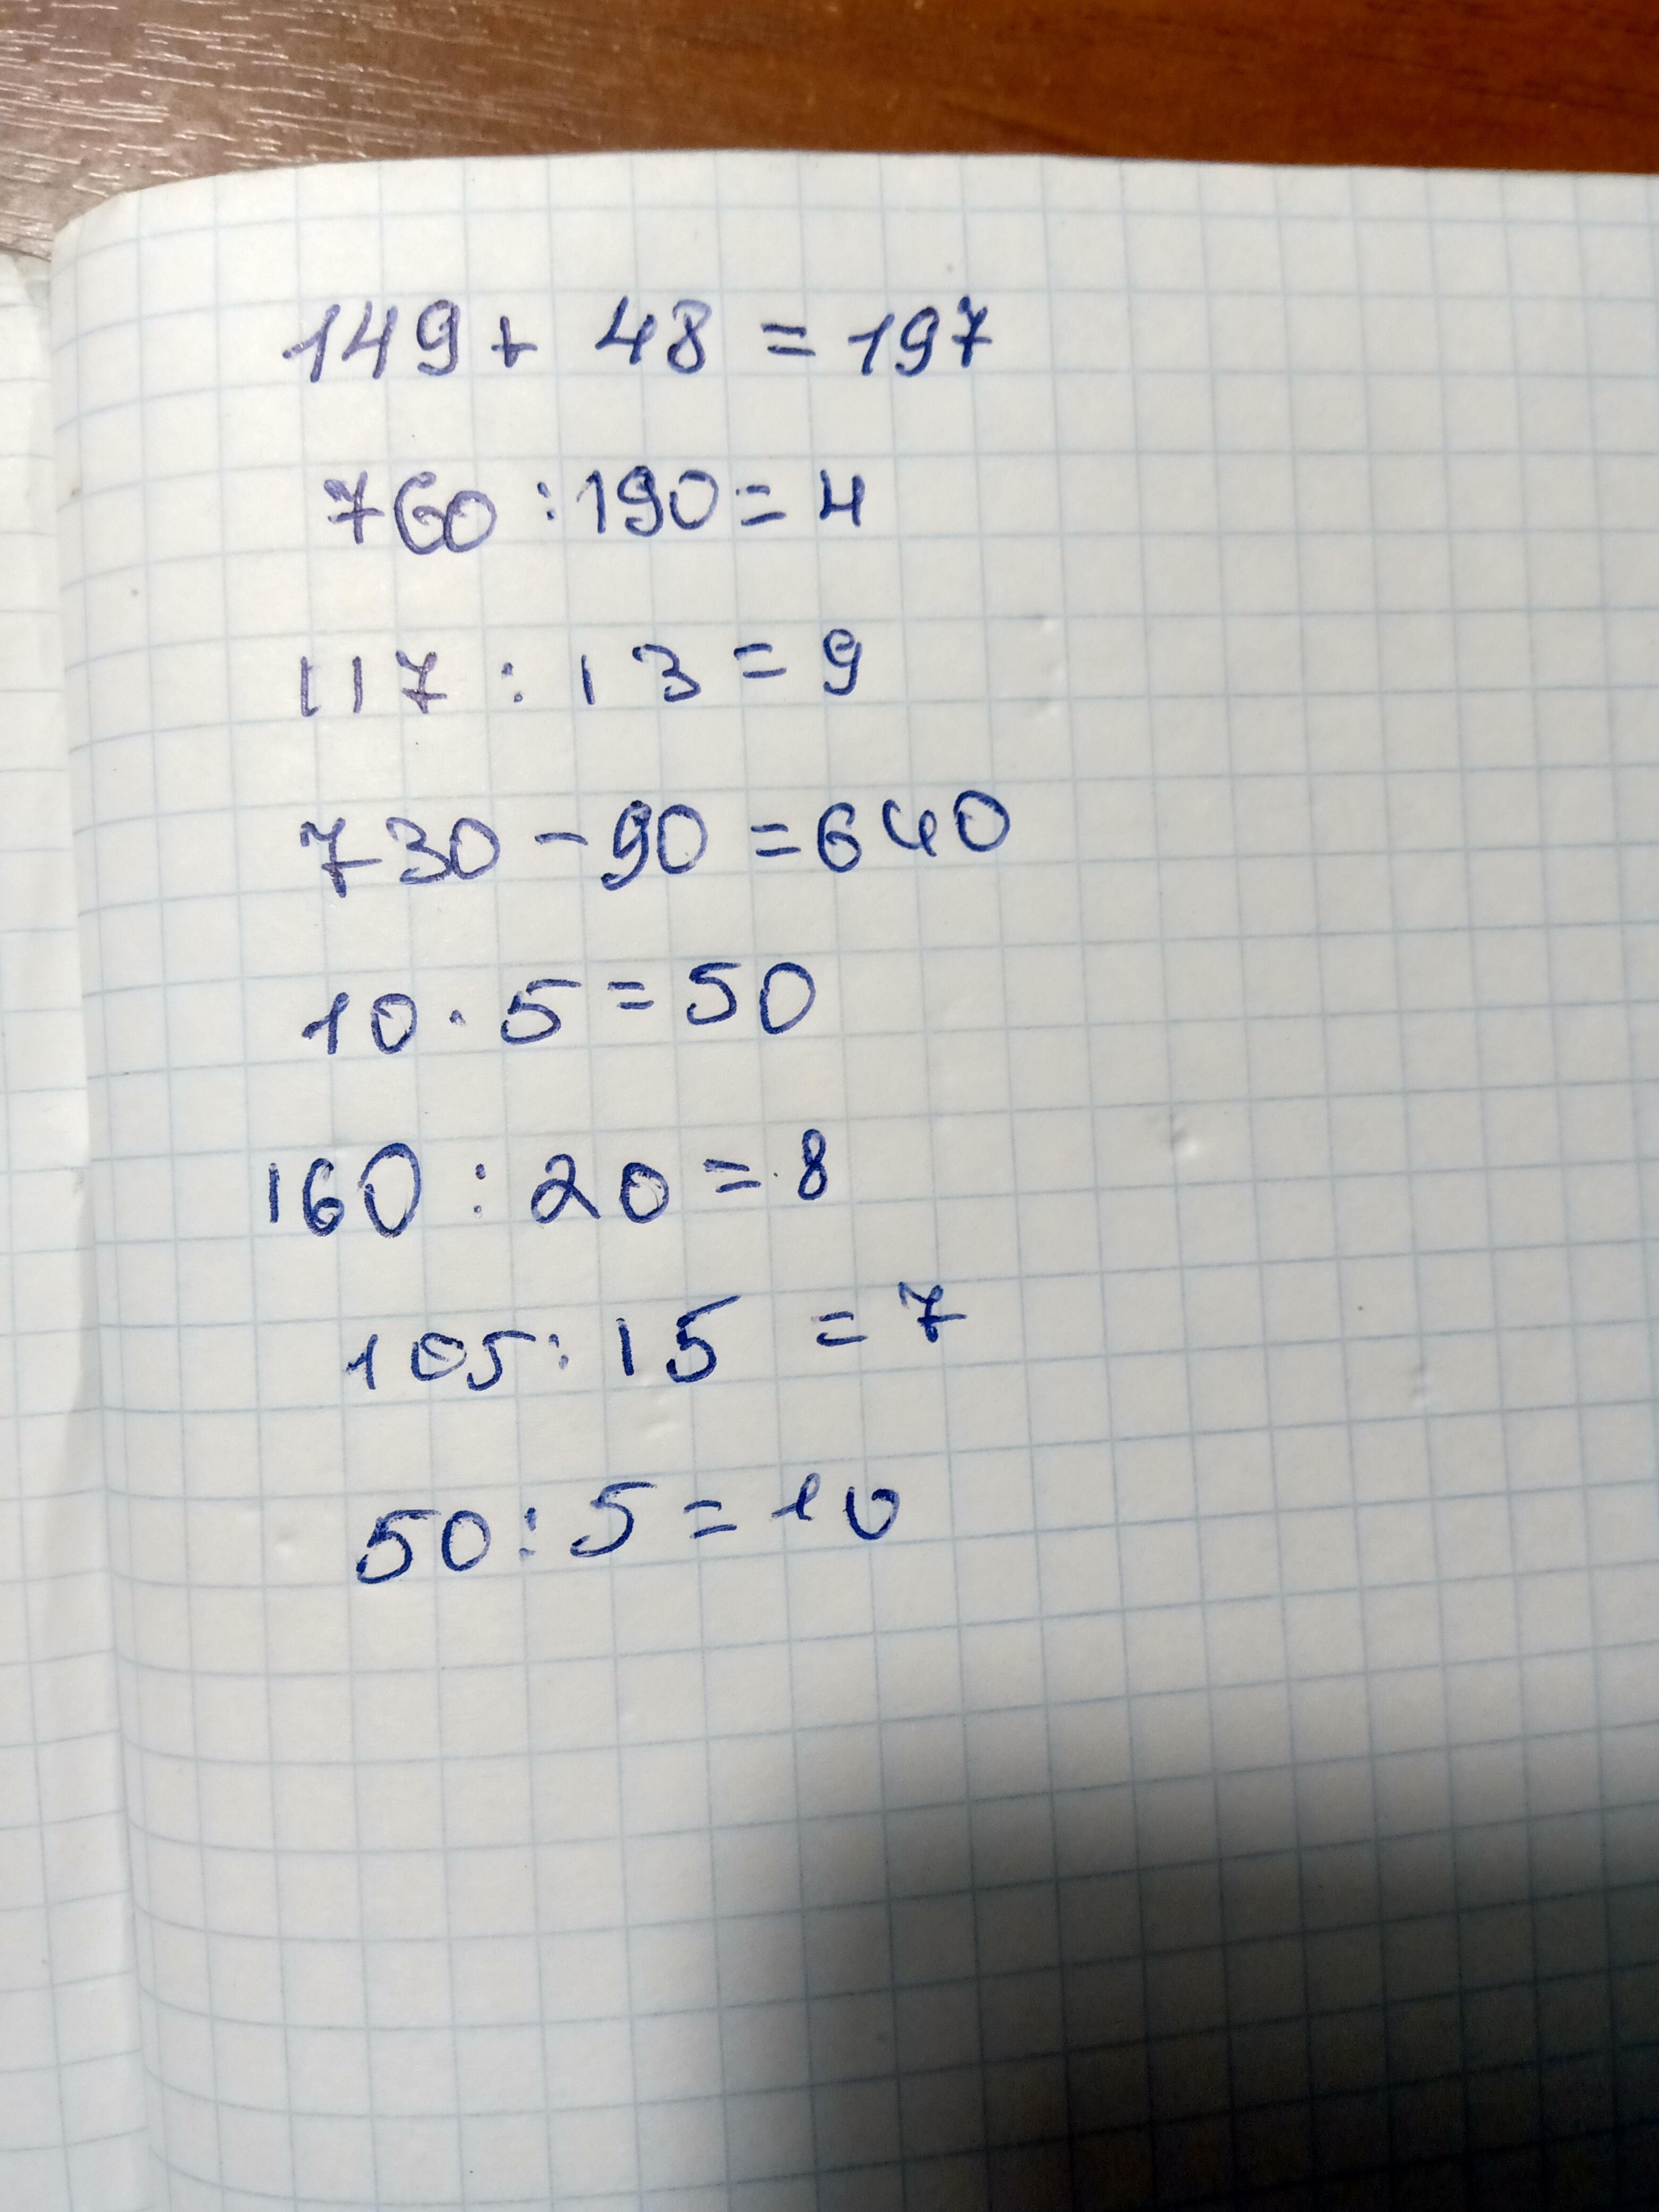 149 + 48 = 197
760 : 190 = 4
117 : 13 = 9
730 - 90 = 640
10 · 5 = 50
160 : 20 = 8
105 : 15 = 7
50 : 5 = 10